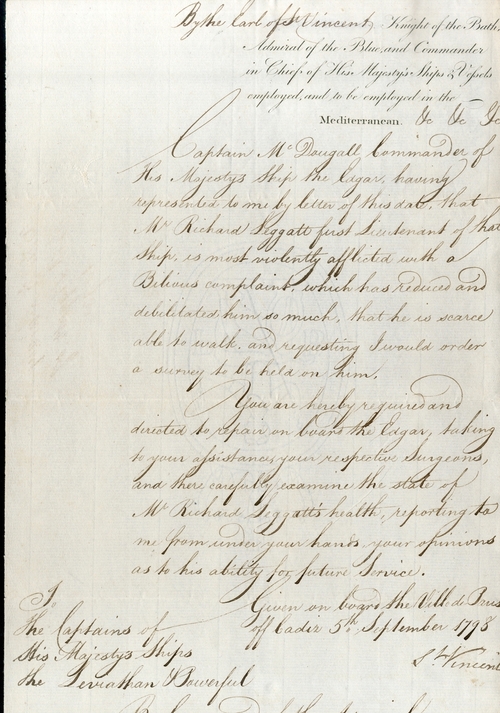 By the Earl of St. Vincent, Knight of the Bath,
Admiral of the Blue, and Commander
in Chief of His Majesty's Ships & Vessels
employed, and to be employed in the
Mediterranean. &c &c &c
Captain Mc Dougall Commander of
His Majesty's Ship the Edgar, having
represented to me by letter of this date, that
Mr Richard Leggatt first Lieutenant of that
Ship, is most violently afflicted with a
Bilious complaint, which has reduced and
debilitated him so much, that he is scarce
able to walk, and requesting I would order
a survey to be held on him.
You are hereby required and
directed to repair on board the Edgar, taking
to your assistance, your respective Surgeons,
and there carefully examine the state of
Mr Richard Leggatt's health, reporting to
me from under your hands, your opinions
as to his ability for future Service.
Given on board the Ville de Paris
off Cadiz 5th September 1798
St Vincent
To
The Captains of
His Majesty's Ships
the Leviathan & Powerful